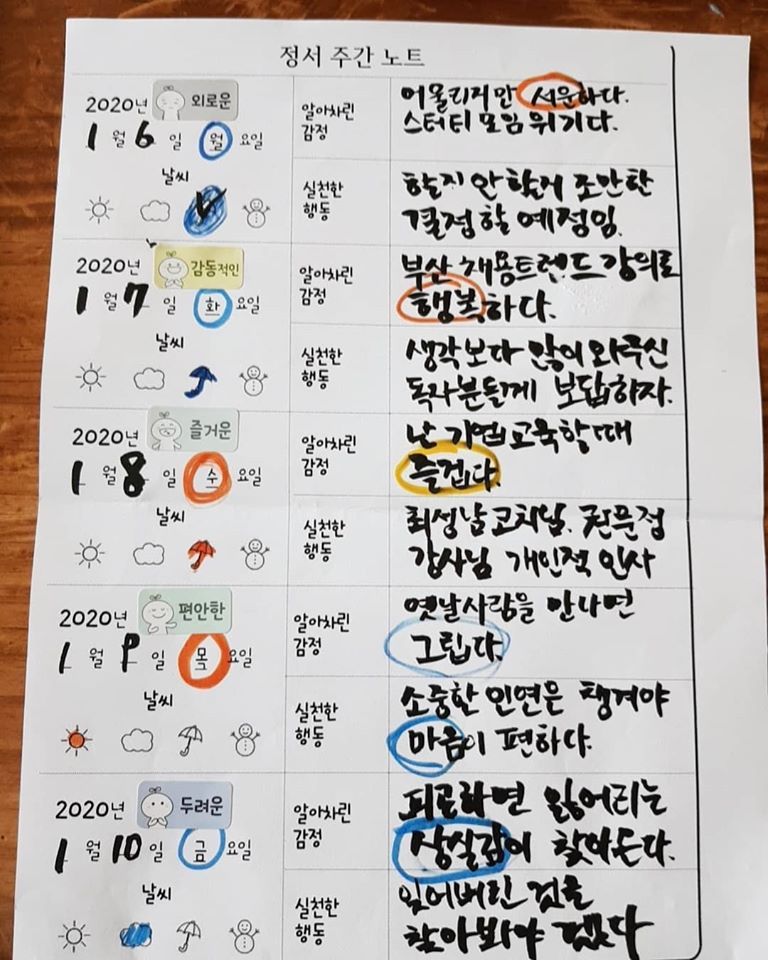 정서 주간 노트
2020년 외로운
1월 6일 월요일
날씨
알아차린
감정
어울리지만 서운하다.
스터티 모임 위기다.
실천한
행동
할지 안 할지 조만한
결정할 예정임.
2020년 감동적인
1월 7일 화요일
날씨
알아차린
감정
부산 채용트렌드 강의로
행복하다.
실천한
행동
생각보다 많이 와주신
독자분들게 보답하자.
2020년 즐거운
1월 8일 수요일
날씨
알아차린
감정
난 기업교육할때
즐겁다.
실천한
행동
최성남코치님. 권문정
강사님 개인적 인사
2020년 편안한
1월 9일 목요일
날씨
알아차린
감정
옛날사람을 만나면
그립다.
실천한
행동
소중한 인연은 챙겨야
마음이 편하다.
2020년 두려운
1월 10일 금요일
날씨
알아차린
감정
피로하면 잃어리는
상실감이 찾아든다.
실천한
행동
잊어버린 것을
찾아봐야 겠다